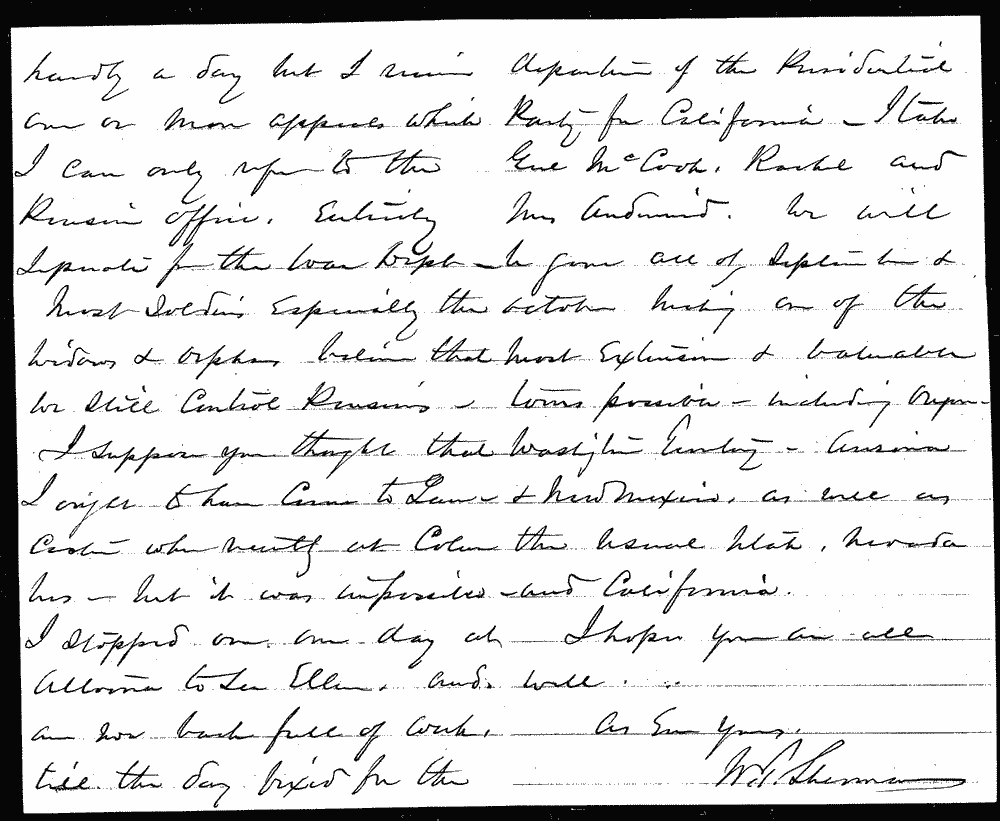 hardly a day but I receive
one or more appeals which
I can only refer to the
Pension office. Entirely
Separate from the War Dept -
Most Soldiers Especially the
widows & orphans believe that
We Still Control Pensions -
I suppose you thought that
I ought to have Come to Lan-
caster when recently at Colum
bus - but it was impossible -
I stopped over one day at
Altoona to See Ellen, and
am now back full of work,
till the day fixed for the
departure of the Presidential
Party for California - I take
Genl McCook, Rachel and
Mrs Audenried. We will
be gone all of September &
October making one of the
most Extensive & valuable
tours possible - including Oregon -
Washington Territory - Arizona
& New Mexico, as well as
the usual Utah, Nevada
and California.
I hope you are all
well.
As Ever Yours,
W. T. Sherman